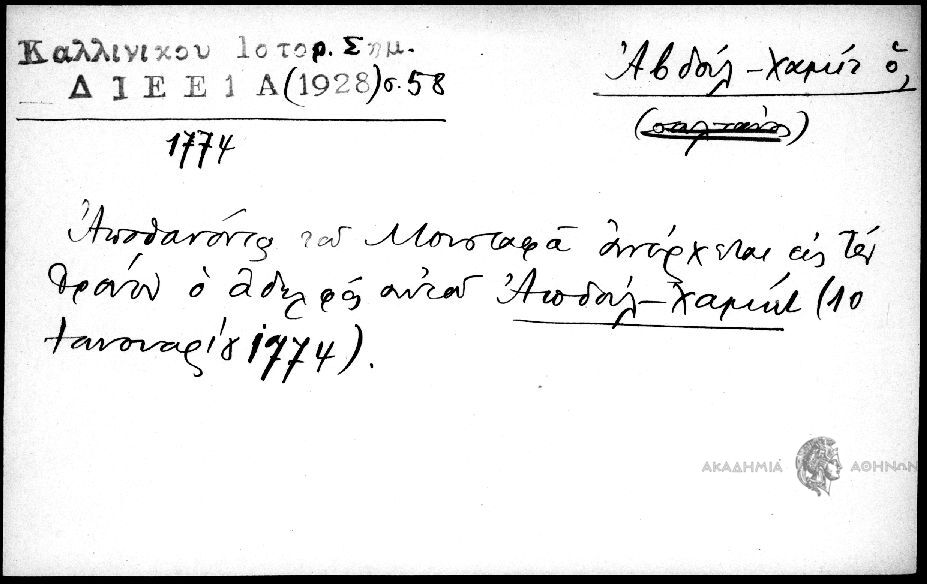 Καλλινικου Ιστορ. Σημ.
ΔΙΕΕ 1Α (1928) σ. 58
Ἀβδούλ-Χαμίτ ὁ,
(σουλτάνος)
1774
Ἀποθανόντος τοῦ Μουσταφᾶ ἀνέρχεται εἰς τὸν
θρόνον ὁ ἀδελφός αὐτοῦ Ἀπδούλ-Χαμίτ (10
Ἰανουαρίου 1774).
ΑΚΑΔΗΜΙΑ ΑΘΗΝΩΝ